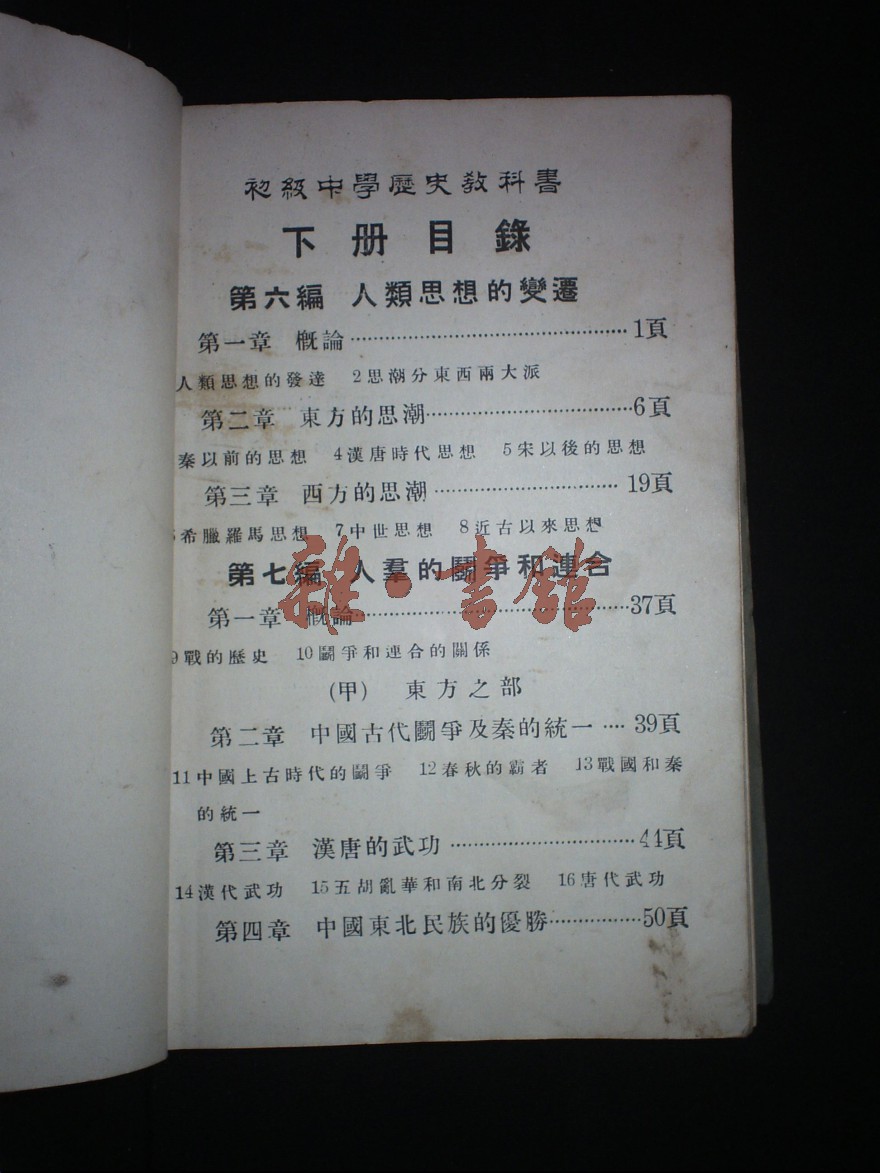 初級中學歷史教科書
下册目錄
第六編 人類思想的變遷
第一章 概論……………………………1頁
人類思想的發達 2思潮分東西兩大派
第二章 東方的思潮……………………6頁
秦以前的思想 4漢唐時代思想 5宋以後的思想
第三章 西方的思潮……………………19頁
6希臘羅馬思想 7中世思想 8近古以來思想
第七編 人羣的鬭爭和連合
第一章 概論……………………………37頁
9戰的歷史 10鬭爭和連合的關係
(甲) 東方之部
第二章 中國古代鬭爭及秦的統一……39頁
11中國上古時代的鬭爭 12春秋的霸者 13戰國和秦
的統一
第三章 漢唐的武功……………………44頁
14漢代武功 15五胡亂華和南北分裂 16唐代武功
第四章 中國東北民族的優勝…………50頁
雜·書館